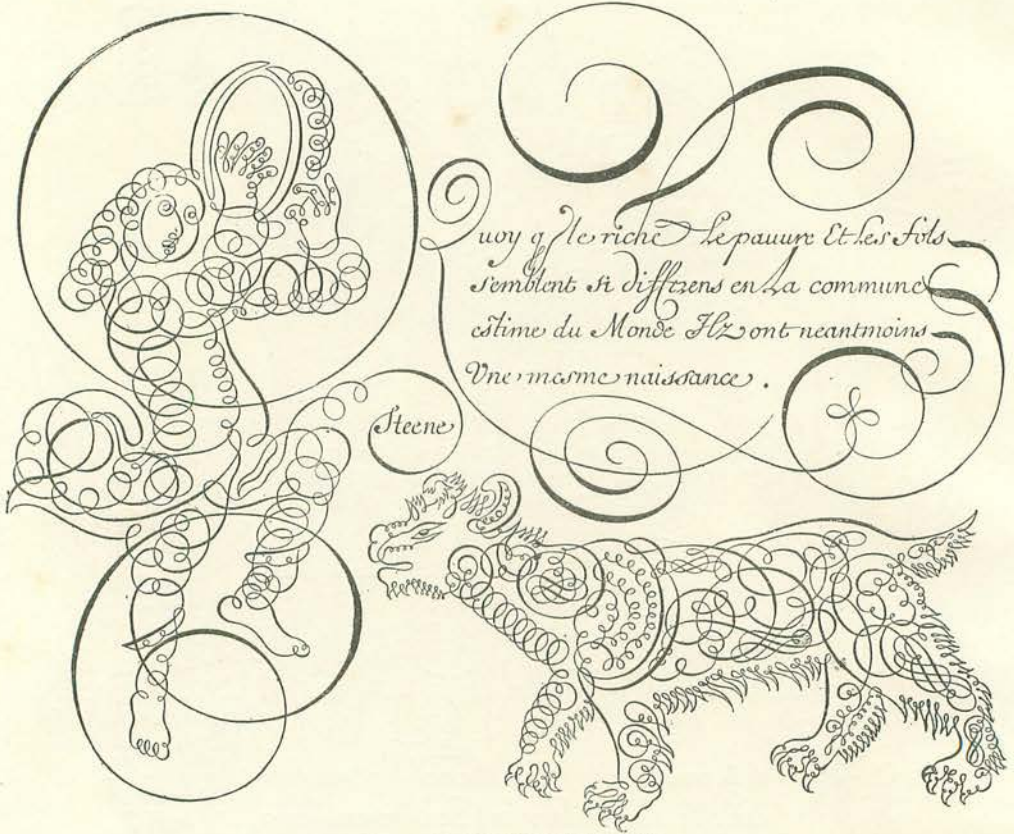 Quoy q le riche Le pauure Et Les fols
semblent si differens en La commune
estime du Monde Ilz ont neantmoins
Vne mesme naissance.
Steene